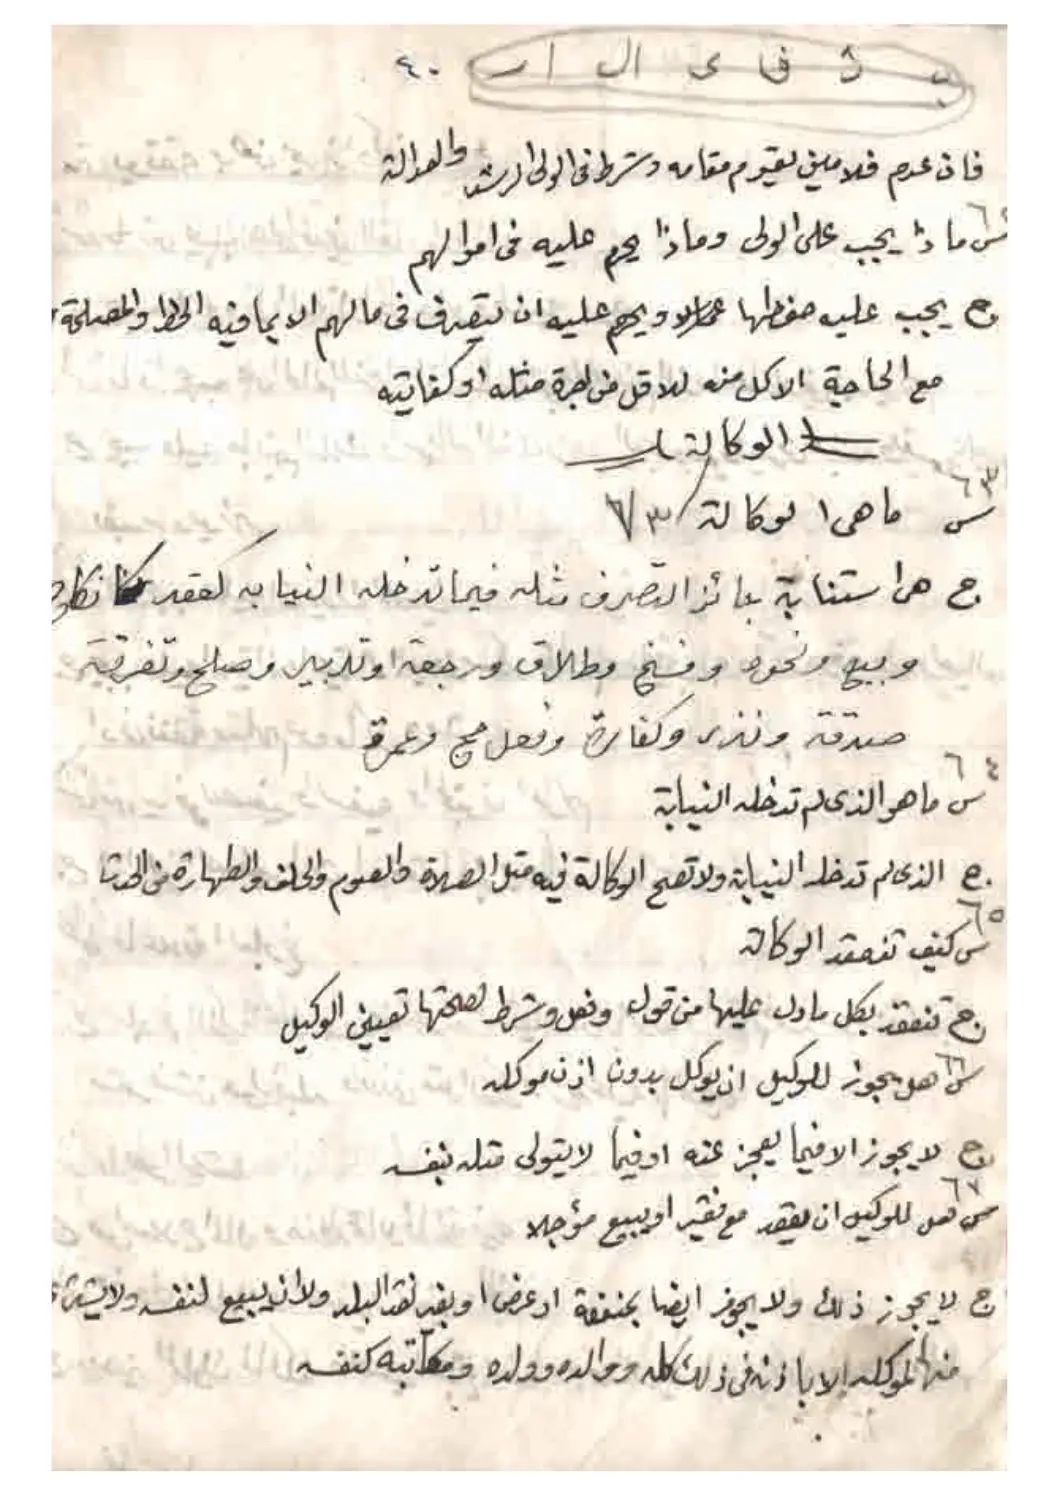 ٤٠
فان عدم فلامين يقوم مقامه وشرط في الولي الرشد والعدالة
س٦٢ ماذا يجب على الولي وماذا يحرم عليه في اموالهم
ج يجب عليه حفظها ويحرم عليه ان يتصرف في مالهم الا بما فيه الحظ والمصلحة
مع الحاجة الاكل منه للاقل من اجرة مثله او كفايته
الوكالة
س٦٣ ما هي الوكالة ٦٣
ج هي استنابة جائز التصرف مثله فيما تدخله النيابه كعقد نكاح
وبيع ونحوه وفسخ وطلاق ورجعة او تدبير وصلح وتفرقة
صدقة ونذر وكفارة وفعل حج وعمرة
س٦٤ ما هو الذي لم تدخله النيابة
ج الذي لم تدخله النيابة ولا تصح الوكالة فيه مثل الصلاة والصوم والحلف والطهارة من الحدث
س٦٥ كيف تنعقد الوكالة
ج تنعقد بكل ما دل عليها من قول وفعل وشرط لصحتها تعيين الوكيل
س٦٦ هل يجوز للوكيل ان يوكل بدون اذن موكله
ج لا يجوز الا فيما يعجز عنه او فيما لا يتولى مثله بنفسه
س٦٧ هل للوكيل ان يعقد مع فقير او يبيع مؤجلا
ج لا يجوز ذلك ولا يجوز ايضا بمنفعة او عرض او بغير نقد البلد ولا ان يبيع لنفسه ولا يشتري
منها لموكله الا باذنه في ذلك كله ووالده وولده ومكاتبه كنفسه